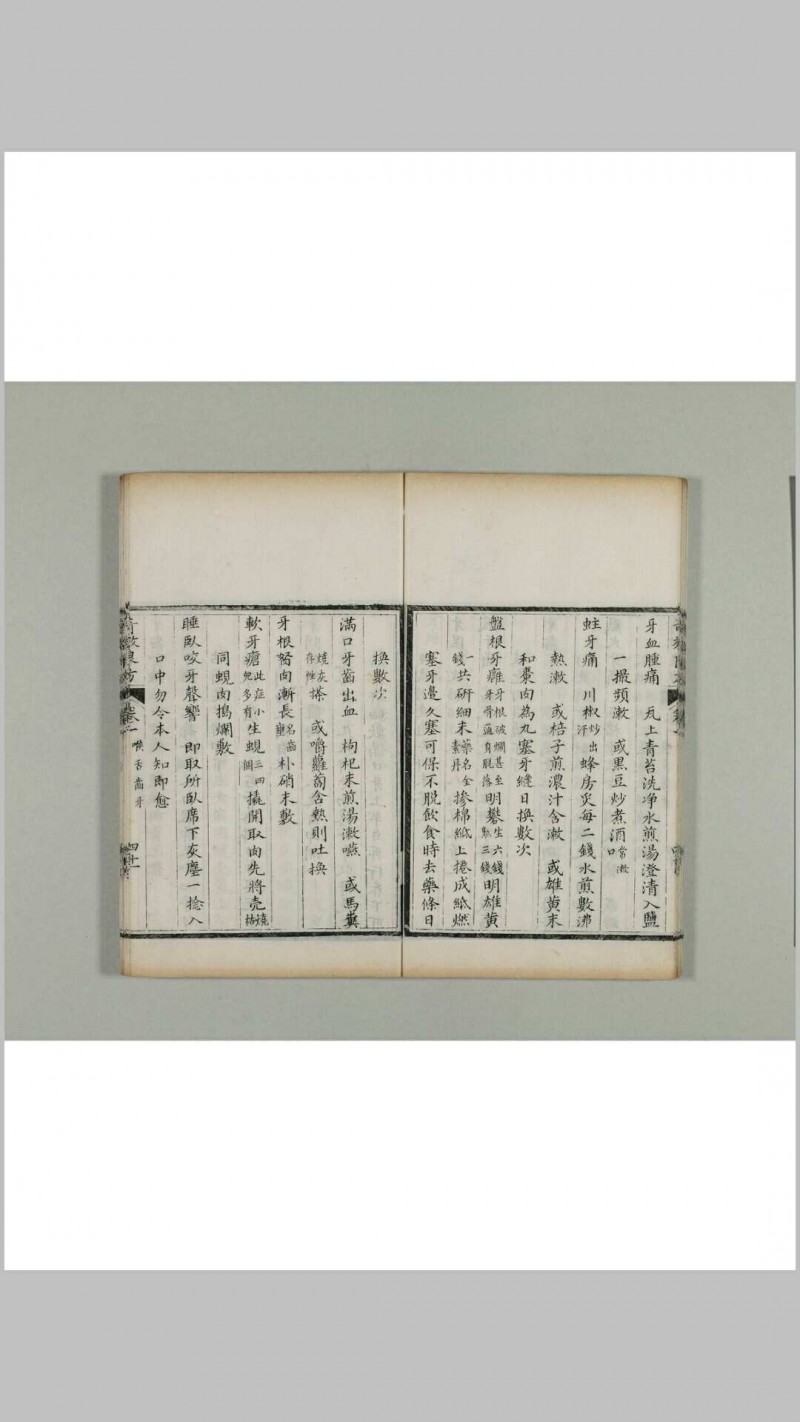 牙血腫痛　瓦上青苔洗净水煎湯澄清入鹽
一撮頻漱　或黒豆炒煮酒常漱口
蛀牙痛　川椒炒出汗蜂房炙每二錢水煎數沸
熱漱　或梧子煎濃汁含漱　或雄黄末
和棗肉為丸塞牙縫日換數次
盤根牙癰牙根破爛甚至牙骨遍身脫落明礬生六錢熟三錢明雄黄
一錢共研細末藥名金素丹掺棉紙上捲成紙燃
塞牙邊久塞可保不脫飲食時去藥條日
換數次
滿口牙齒出血　枸杞末煎湯漱嚥　或馬糞
燒灰存性搽　或嚼蘿蔔含熱則吐換
牙根胬肉漸長名齒壅朴硝末敷
軟牙瘡此症小兒多有生蜆三四個撬開取肉先將壳燒枯
同蜆肉搗爛敷
睡臥咬牙聲響　即取所臥席下灰塵一捻入
口中勿令本人知即愈
喉舌齒牙